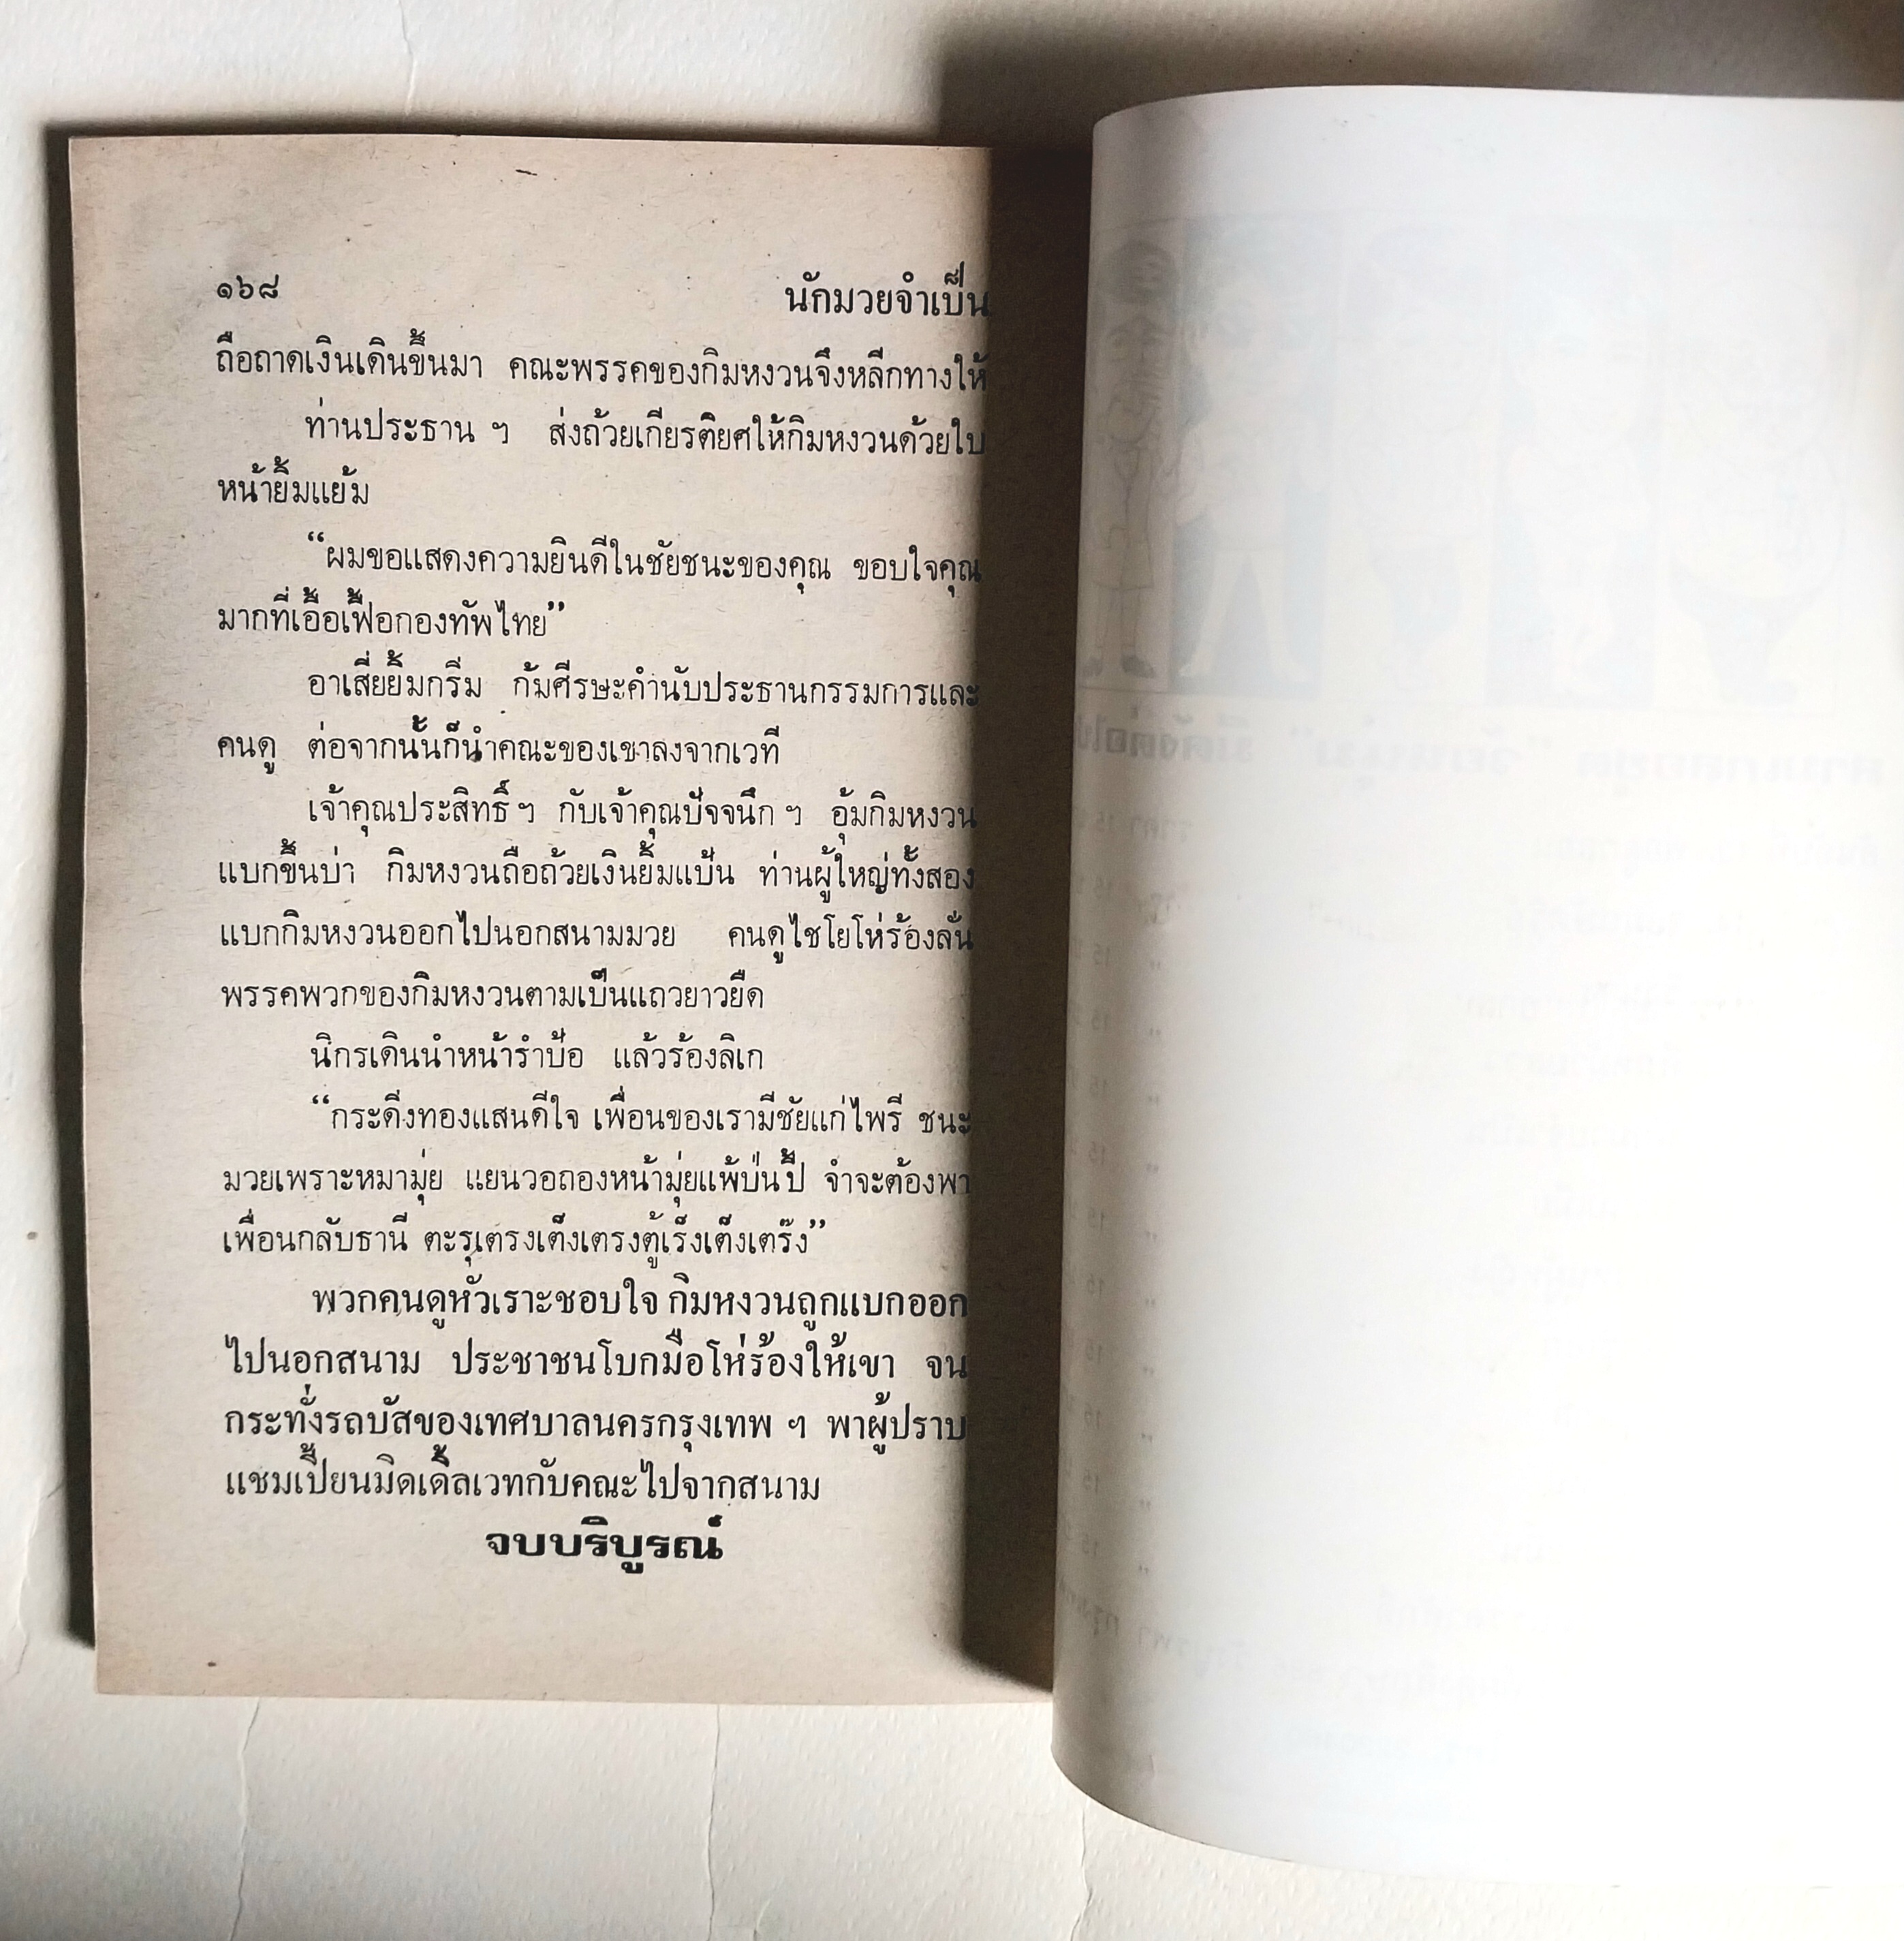 ๑๖๘ นักมวยจำเป็น
ถือถาดเงินเดินขึ้นมา คณะพรรคของกิมหงวนจึงหลีกทางให้
ท่านประธาน ฯ ส่งถ้วยเกียรติยศให้กิมหงวนด้วยใบ
หน้ายิ้มแย้ม
“ผมขอแสดงความยินดีในชัยชนะของคุณ ขอบใจคุณ
มากที่เอื้อเฟื้อกองทัพไทย”
อาเสี่ยยิ้มกริ่ม ก้มศีรษะคำนับประธานกรรมการและ
คนดู ต่อจากนั้นก็นำคณะของเขาลงจากเวที
เจ้าคุณประสิทธิ์ ฯ กับเจ้าคุณปัจจนึก ฯ อุ้มกิมหงวน
แบกขึ้นบ่า กิมหงวนถือถ้วยเงินยิ้มแป้น ท่านผู้ใหญ่ทั้งสอง
แบกกิมหงวนออกไปนอกสนามมวย คนดูไชโยโห่ร้องลั่น
พรรคพวกของกิมหงวนตามเป็นแถวยาวยืด
นิกรเดินนำหน้ารำป้อ แล้วร้องลิเก
“กระดี่งทองแสนดีใจ เพื่อนของเรามีชัยแก่ไพรี ชนะ
มวยเพราะหมามุ่ย แยนวอถองหน้ามุ่ยแพ้ป่นปี้ จำจะต้องพา
เพื่อนกลับธานี ตะรุเตรงเต็งเตรงตู้เร็งเต็งเตร๊ง”
พวกคนดูหัวเราะชอบใจ กิมหงวนถูกแบกออก
ไปนอกสนาม ประชาชนโบกมือโห่ร้องให้เขา จน
กระทั่งรถบัสของเทศบาลนครกรุงเทพ ฯ พาผู้ปราบ
แชมเปี้ยนมิดเดิ้ลเวทกับคณะไปจากสนาม
จบบริบูรณ์